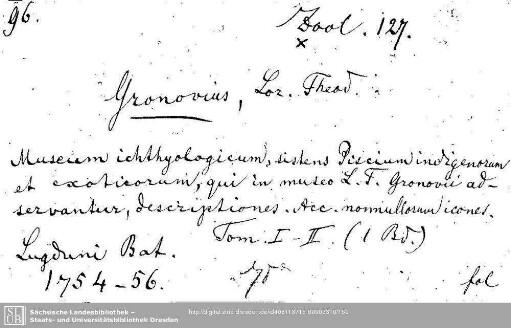 96.
Zool. 127.
x
Gronovius, Lor. Theod.
Museum ichthyologicum, sistens Piscium indigenorum
et exoticorum, qui in museo L. T. Gronovii ad-
servantur, descriptiones. Acc. nonnullorum icones.
Lugduni Bat. Tom. I-II. (1 Bd.)
1754-56. fol
Sächsische Landesbibliothek –
Staats- und Universitätsbibliothek Dresden